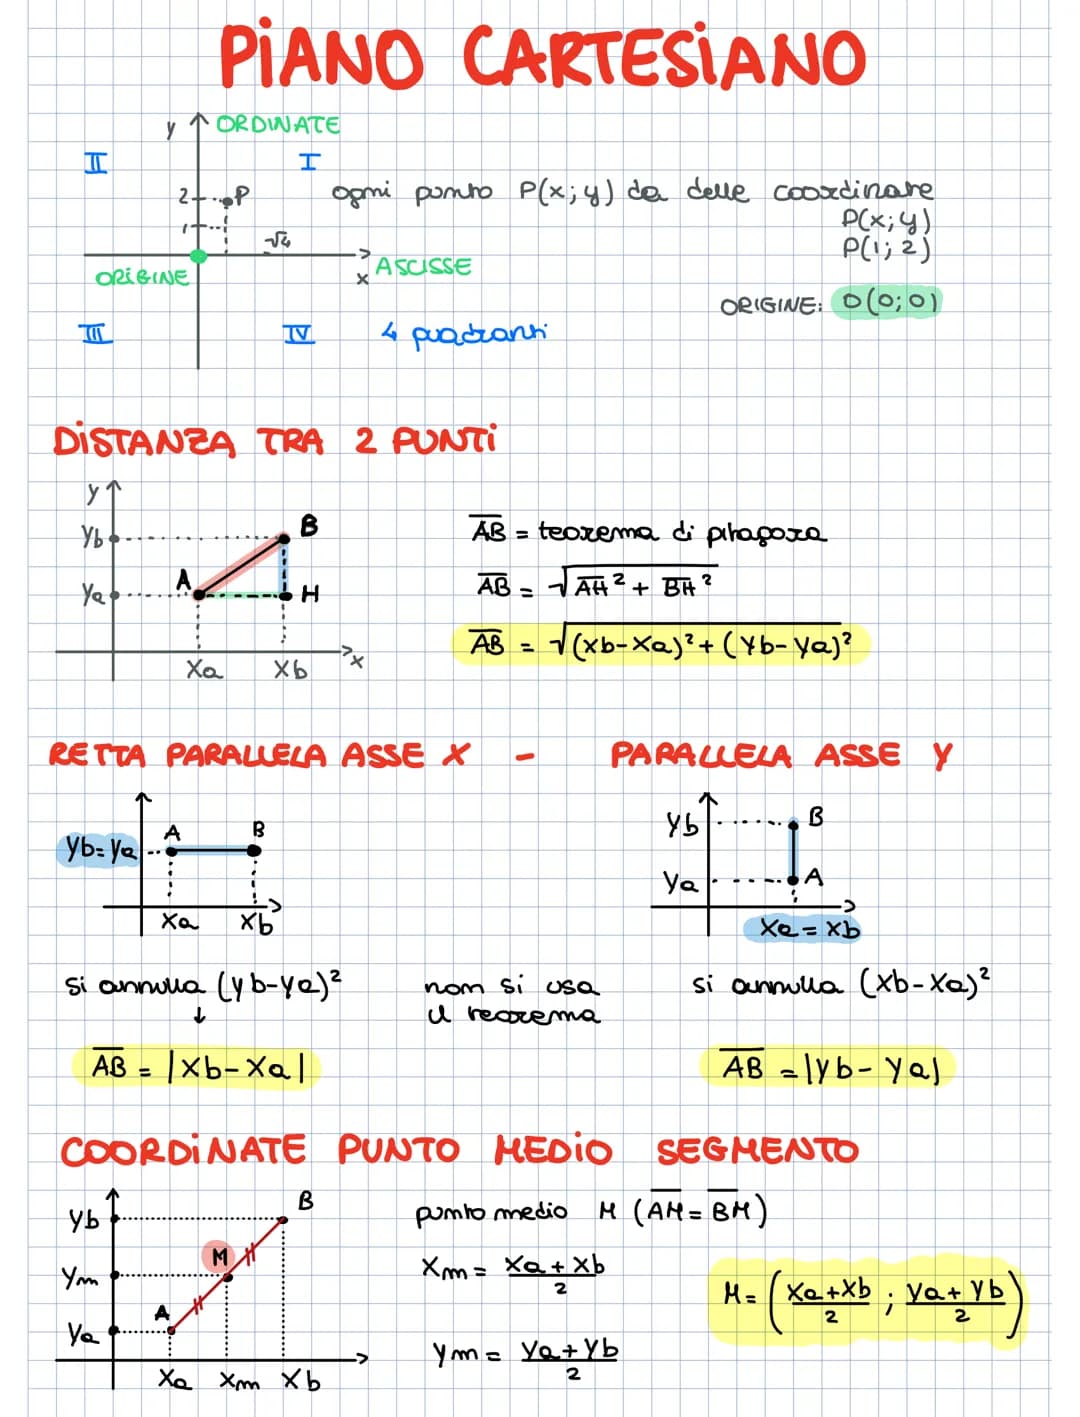 PIANO CARTESIANO
y ORDINATE
II I
2 P ogni punto P(x;y) da delle coordinate
P(x;y)
1 P(1;2)
√4
ORIGINE x ASCISSE
ORIGINE: O(0;0)
III IV 4 quadranti
DISTANZA TRA 2 PUNTI
y
Yb B AB = teorema di pitagora
Ya A H AB = √AH² + BH²
AB = √(Xb-Xa)² + (Yb-Ya)²
Xa Xb x
RETTA PARALLELA ASSE X - PARALLELA ASSE Y
Yb=Ya A B
Xa Xb
Yb B
Ya A
Xa = Xb
si annulla (yb-ya)² non si usa si annulla (Xb-Xa)²
↓ il teorema
AB = |Xb-Xa| AB = |Yb-Ya|
COORDINATE PUNTO MEDIO SEGMENTO
Yb B punto medio M (AM=BM)
Ym M Xm = Xa+Xb/2
M = (Xa+Xb/2 ; Ya+Yb/2)
Ya A Ym = Ya+Yb/2
Xa Xm Xb